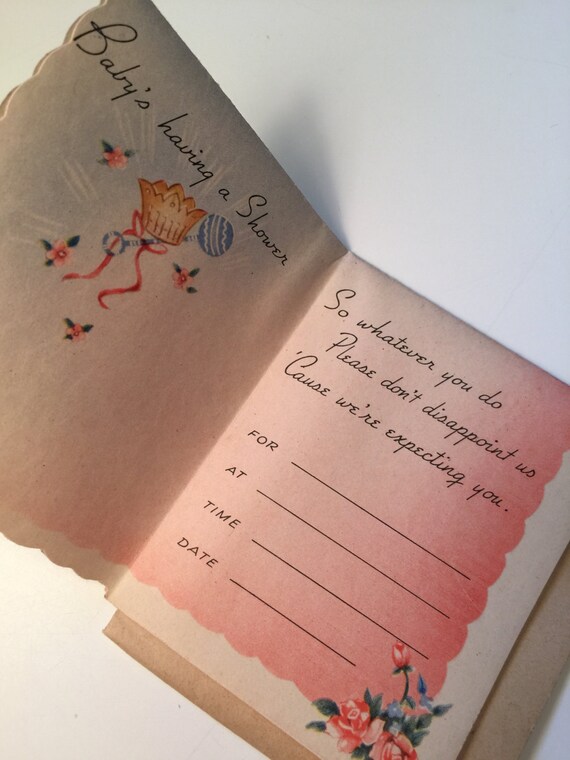 Baby's having a Shower
So whatever you do
Please don't disappoint us
'Cause we're expecting you.
FOR
AT
TIME
DATE